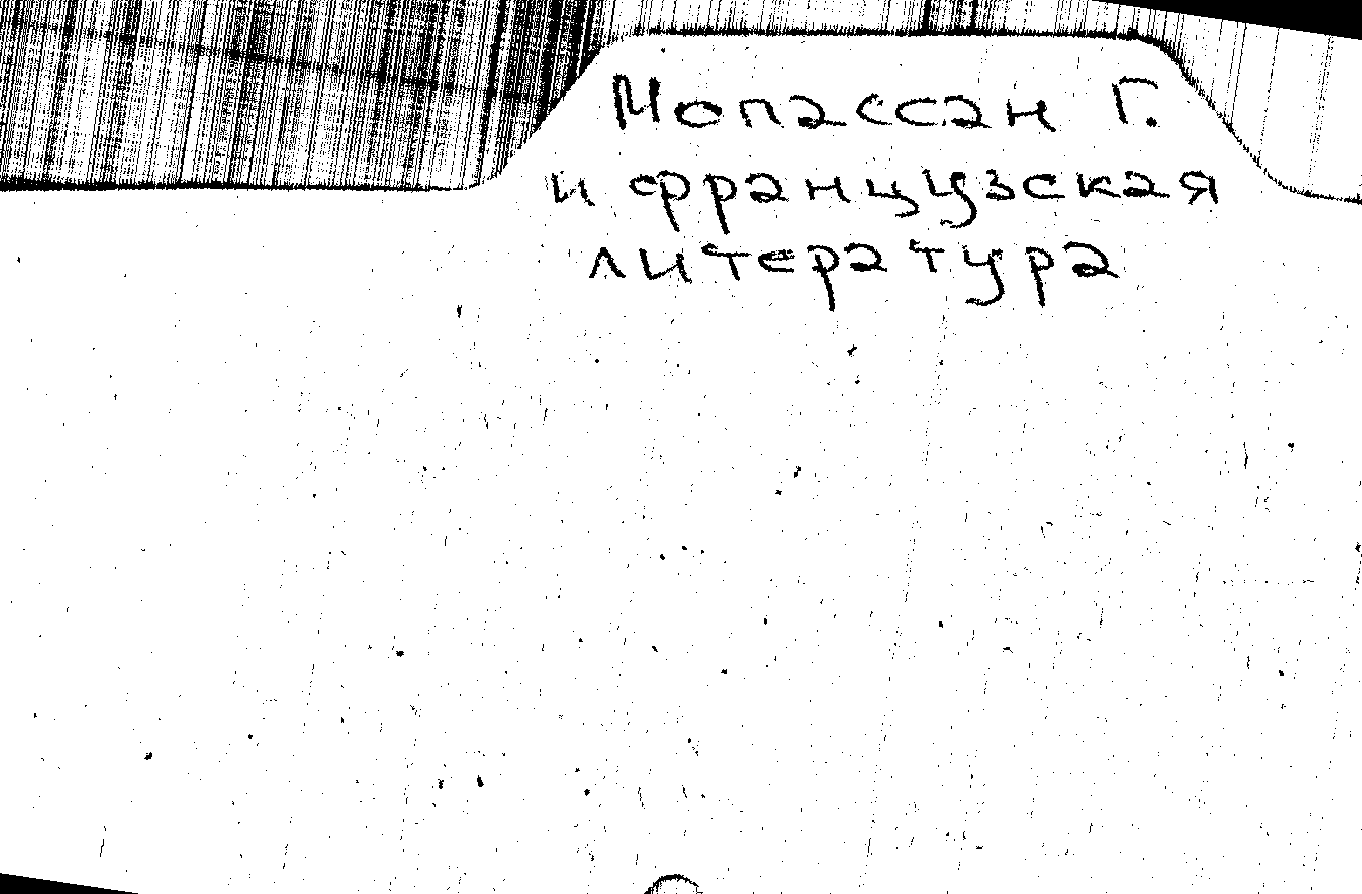 Мопассан Г.
и французская
литература